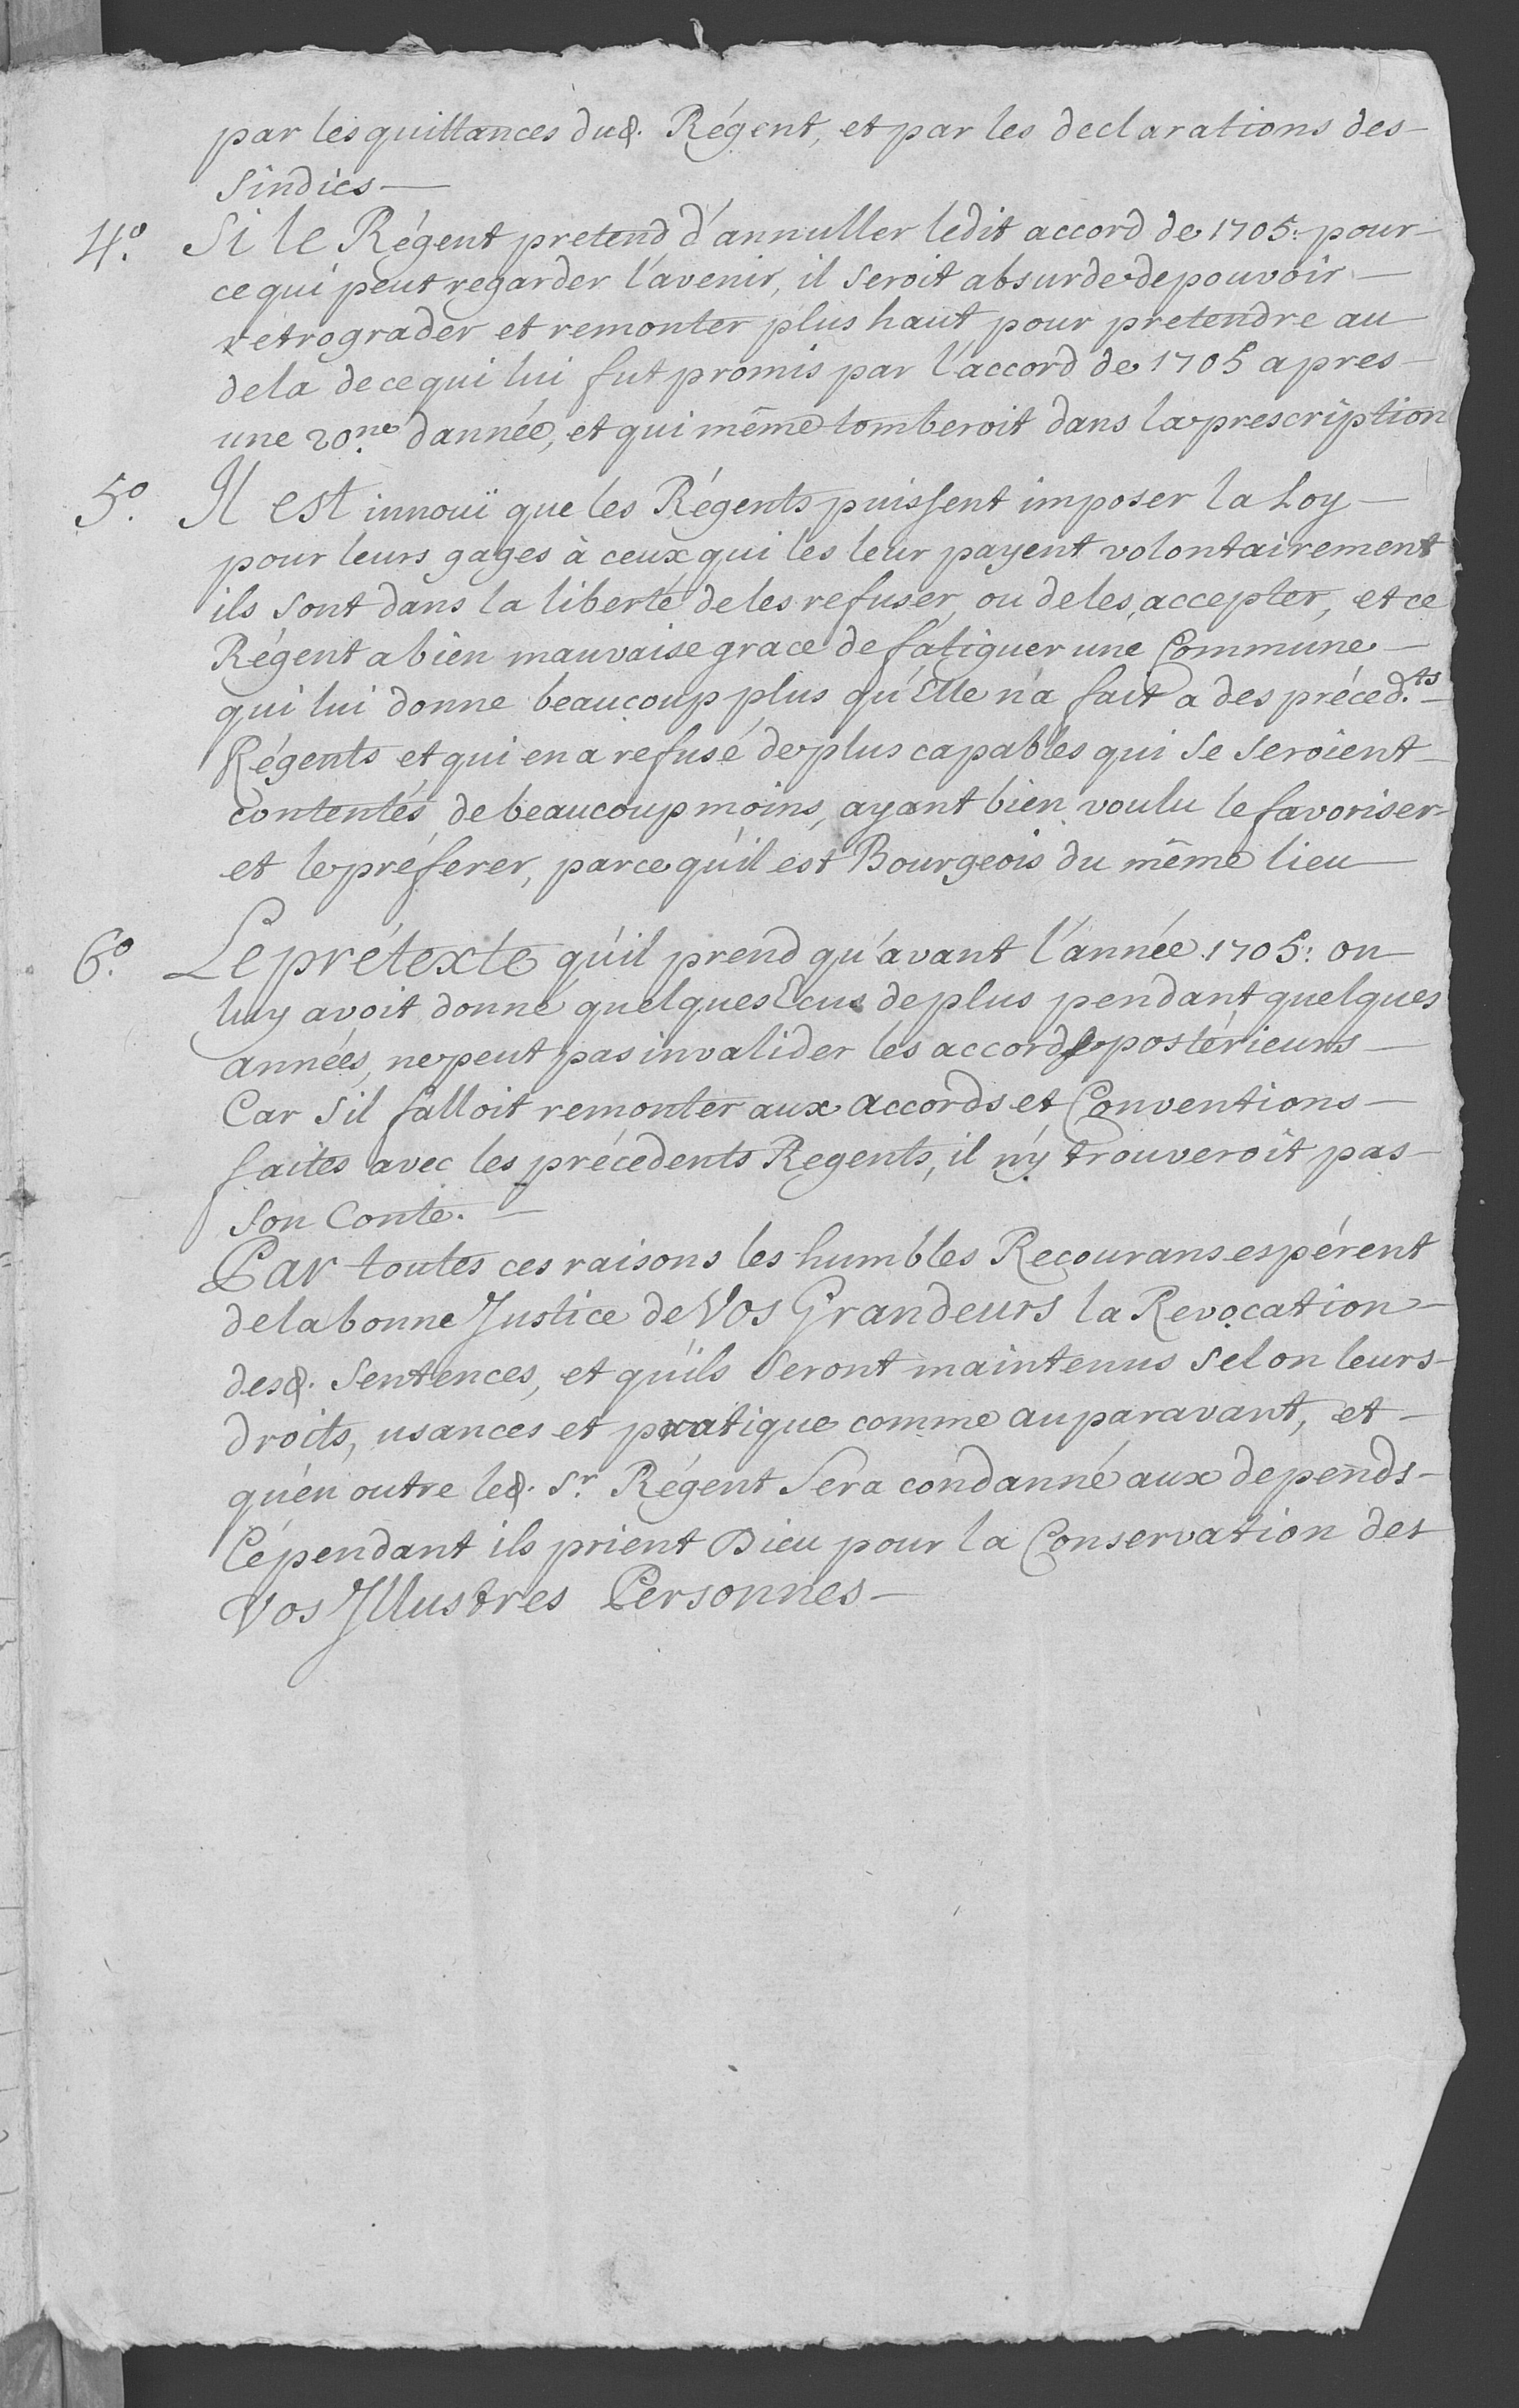 par les quittances dud. Régent, et par les declarations des
Sindics
4.º Si le Régent pretend d'annuller ledit accord de 1705: pour
ce qui peut regarder l'avenir, il seroit absurde de pouvoir
retrograder et remonter plus haut pour pretendre au
dela de ce qui lui fut promis par l'accord de 1705 apres
une 20.ne dannée, et qui même tomberoit dans la prescription
5.º Il est innouï que les Régents puissent imposer la Loy
pour leurs gages à ceux qui les leur payent volontairement
ils sont dans la liberté de les refuser, ou de les accepter, et ce
Régent a bien mauvaise grace de fatiguer une Commune
qui lui donne beaucoup plus qu'Elle n'a fait a des précéd.ts
Régents et qui en a refusé de plus capables qui se seroient
contentés de beaucoup moins, ayant bien voulu le favoriser
et le préferer, parce qu'il est Bourgeois du même lieu
6.º Le prétexte qu'il prend qu'avant l'année 1705: on
luy avoit donné quelques Ecus de plus pendant quelques
années, ne peut pas invalider les accords postérieurs
Car s'il falloit remonter aux accords et Conventions
faites avec les précedents Regents, il n'y trouveroit pas
son Conte.
Par toutes ces raisons les humbles Recourans espérent
de la bonne Justice de Vos Grandeurs la Revocation
desd. Sentences, et qu'ils seront maintenus selon leurs
droits, usances et pratique comme auparavant, et
qu'en outre led. Sr. Régent sera condanné aux depends
Cépendant ils prient Dieu pour la Conservation des
Vos Illustres Personnes